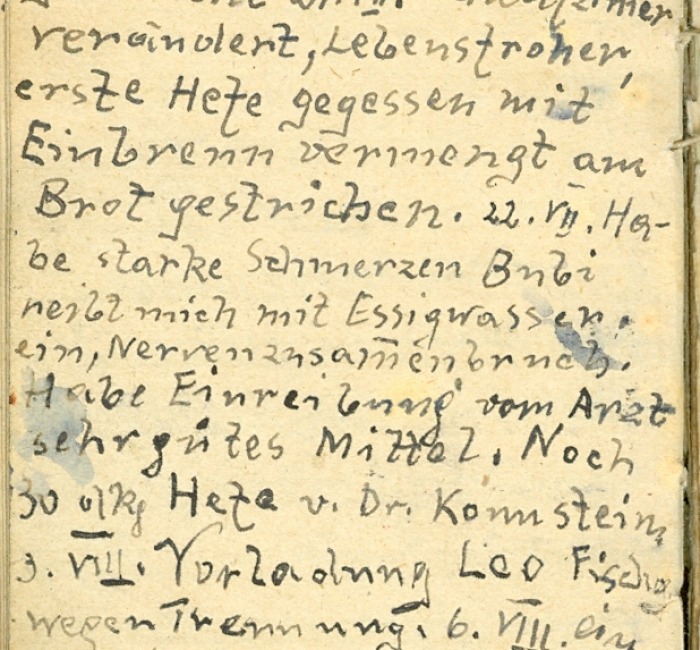 verändert, Lebensfroher,
erste Hefe gegessen mit
Einbrenn vermengt am
Brot gestrichen. 22. VII. Ha-
be starke Schmerzen Bubi
reibt mich mit Essigwasser.
ein, Nervenzusam̄enbruch.
Habe Einreibung vom Arzt
sehr gutes Mittel. Noch
30 dkg Hefe v. Dr. Kornstein,
3. VIII. Vorladung Leo
wegen Trennung. 6. VIII. ein